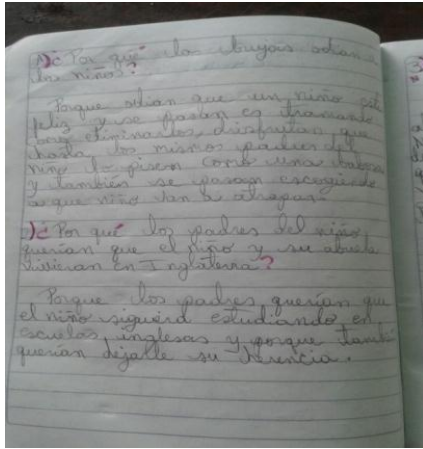 1) ¿Por qué las brujas odian a
los niños?
Porque odian que un niño esté
feliz y se pasan es tramando
como eliminarlos, disfrutan que
hasta los mismos padres del
niño lo pisen como una babosa
y también se pasan escogiendo
a que niño van a atrapar.
2) ¿Por qué los padres del niño,
querían que el niño y su abuela
vivieran en Inglaterra?
Porque los padres querían que
el niño siguiera estudiando en
escuelas inglesas y porque también
querían dejalle su herencia.